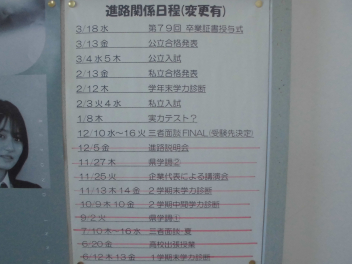 進路関係日程(変更有)
3/18水 第79回 卒業証書授与式
3/13金 公立合格発表
3/4水5木 公立入試
2/13金 私立合格発表
2/12木 学年末学力診断
2/3火4水 私立入試
1/8木 実力テスト?
12/10水〜16火 三者面談FINAL(受験先決定)
12/5金 進路説明会
11/27木 県学調②
11/25火 企業代表による講演会
11/13木14金 2学期末学力診断
10/9木10金 2学期中間学力診断
9/2火 県学調①
7/10木〜16水 三者面談 夏
6/20金 高校出張授業
6/12木13金 1学期末学力診断